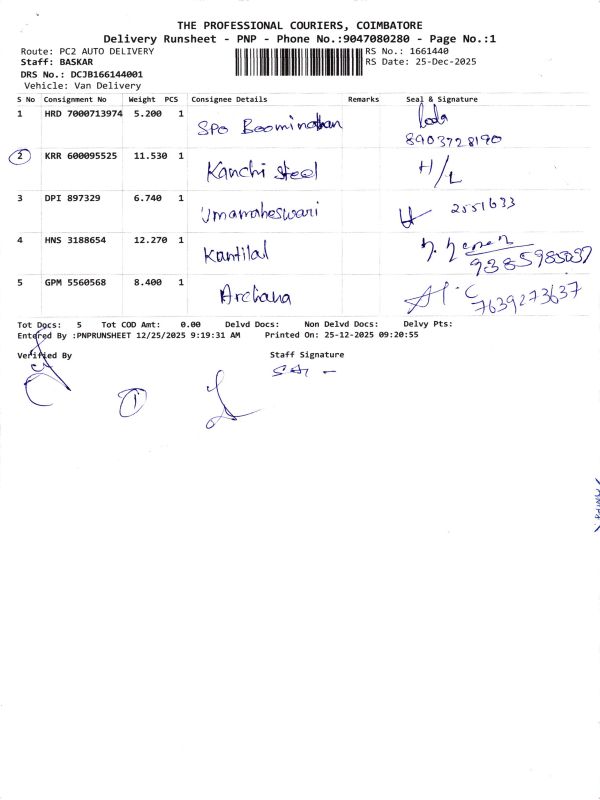 THE PROFESSIONAL COURIERS, COIMBATORE
Delivery Runsheet - PNP - Phone No.:9047080280 - Page No.:1
Route: PC2 AUTO DELIVERY RS No.: 1661440
Staff: BASKAR RS Date: 25-Dec-2025
DRS No.: DCJB166144001
Vehicle: Van Delivery
S No Consignment No Weight PCS Consignee Details Remarks Seal & Signature
1 HRD 7000713974 5.200 1 SPO Boominathan
8903728190
2 KRR 600095525 11.530 1 Kanchi steel H/L
3 DPI 897329 6.740 1 Umamaheswari 2551633
4 HNS 3188654 12.270 1 Kantilal
9385985037
5 GPM 5560568 8.400 1 Archana
7639273637
Tot Docs: 5 Tot COD Amt: 0.00 Delvd Docs: Non Delvd Docs: Delvy Pts:
Entered By :PNPRUNSHEET 12/25/2025 9:19:31 AM Printed On: 25-12-2025 09:20:55
Verified By Staff Signature
1